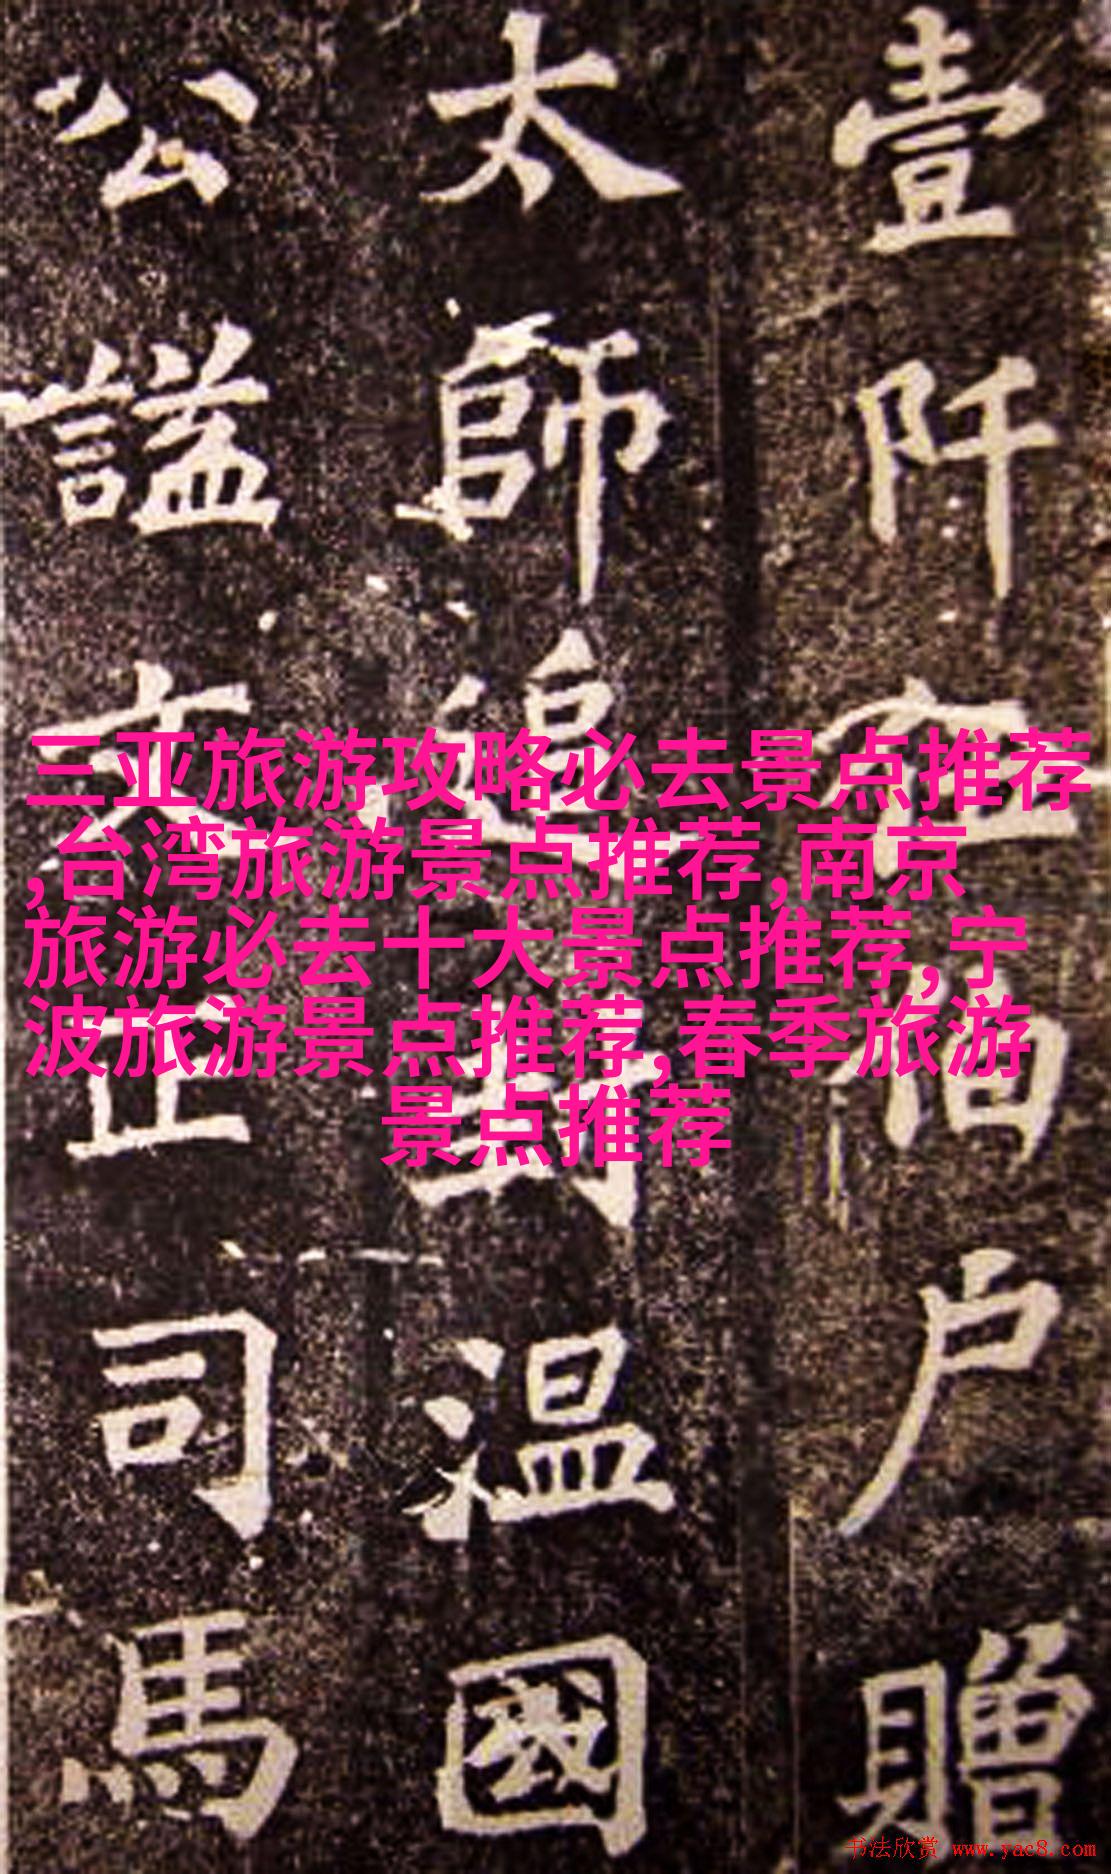 壹阡佰户贈
太師追封温國
公謚文正司馬
三亚旅游攻略必去景点推荐
,台湾旅游景点推荐,南京
旅游必去十大景点推荐,宁
波旅游景点推荐,春季旅游
景点推荐
书法欣赏 www.yac8.com